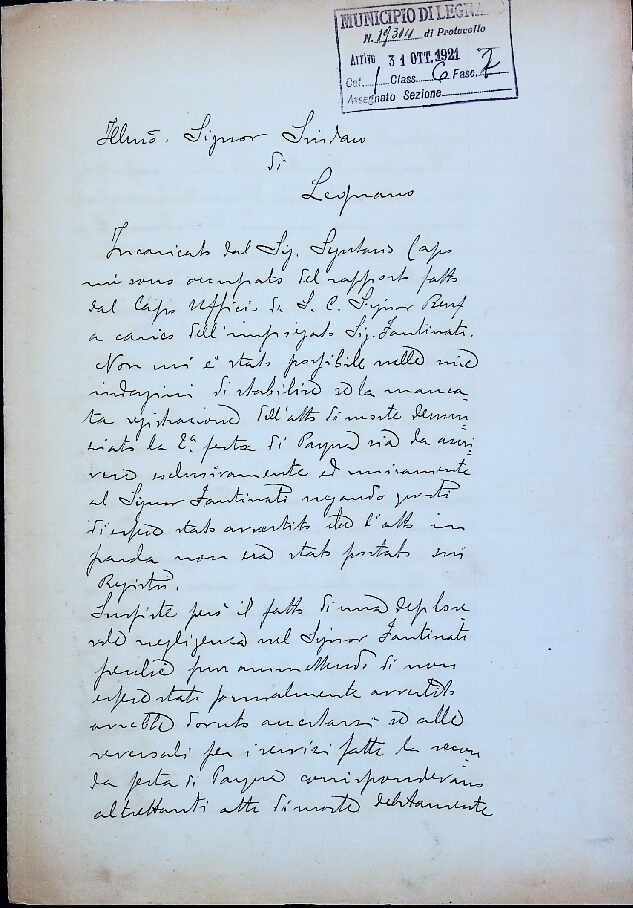 MUNICIPIO DI LEGNA
N. 19314 di Protocollo
Arrivo 31 OTT. 1921
Cat. 1 Class. 6 Fasc. 2
Assegnato Sezione
Illmo. Signor Sindaco
di
Legnano
Incaricato dal Sig. Segretario Capo
mi sono occupato del rapporto fatto
dal Capo Ufficio di S. C. Signor
a carico dell'impiegato Sig. Fantinati.
Non mi è stato possibile nelle mie
indagini di stabilire se la manca-
ta registrazione dell'atto di morte denun-
ciato la 2ª festa di Pasqua sia da ascri-
versi esclusivamente ed unicamente
al Signor Fantinati negando questi
di essere stato avvertito che l'atto in
parola non era stato portato sui
Registri.
Sussiste però il fatto di una deplore
vole negligenza nel Signor Fantinati
perchè pur ammettendo di non
essere stato formalmente avvertito
avrebbe dovuto accertarsi se alle
reversali per i servizi fatte la secon
da festa di Pasqua corrispondevano
altrettanti atti di morte debitamente